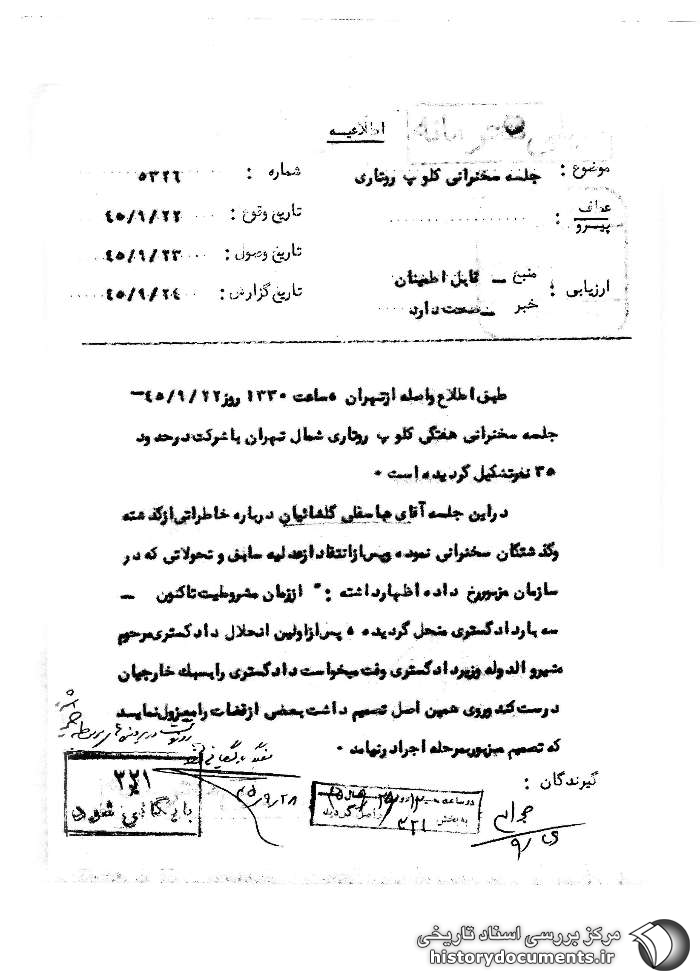 اطلاعیه
موضوع : جلسه سخنرانی کلوپ روتاری
شماره : ۵۳۲۶
عطف
پیرو :
تاریخ وقوع : ۴۵/۹/۲۲
تاریخ وصول : ۴۵/۹/۲۳
ارزیابی : منبع ـ قابل اطمینان
خبر ـ صحت دارد
تاریخ گزارش : ۴۵/۹/۲۴
طبق اطلاع واصله از تهران ساعت ۱۳۳۰ روز ۴۵/۹/۲۲
جلسه سخنرانی هفتگی کلوپ روتاری شمال تهران با شرکت در حدود
۳۵ نفر تشکیل گردیده است ۰
در این جلسه آقای عباسقلی گلشائیان درباره خاطراتی از گذشته
وگذشتگان سخنرانی نموده و پس از انتقاد از عدلیه سابق و تحولاتی که در
سازمان مزبور رخ داده اظهار داشته : " از زمان مشروطیت تاکنون ـ
سه بار دادگستری منحل گردیده ۰ پس از اولین انحلال دادگستری مرحوم
مشیرو الدوله وزیر دادگستری وقت میخواست دادگستری را بسبک خارجیان
درست کند و روی همین اصل تصمیم داشت بعضی از قضات را معزول نماید
که تصمیم مزبور بمرحله اجرا در نیامد ۰
گیرندگان :
۳۲۱
بایگانی شود
۴۵/۹/۲۸
در ساعت
به بخش ۳۲۱ واصل گردید
مرکز بررسی اسناد تاریخی
historydocuments.ir